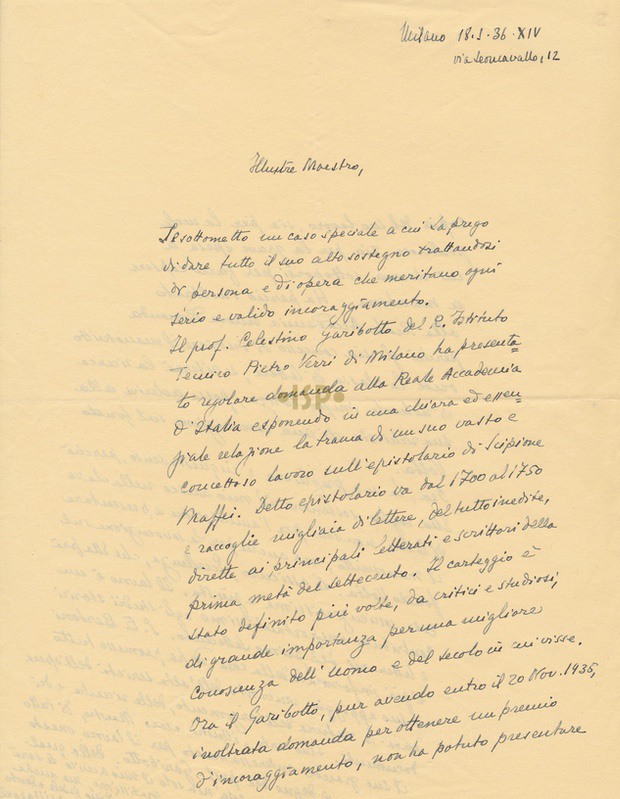 Milano 18.1.36.XIV
via Leoncavallo, 12
Illustre Maestro,
Le sottometto un caso speciale a cui La prego
di dare tutto il suo alto sostegno trattandosi
di persona e di opera che meritano ogni
serio e valido incoraggiamento.
Il prof. Celestino Garibotto del R. Istituto
Tecnico Pietro Verri di Milano ha presenta-
to regolare domanda alla Reale Accademia
d'Italia esponendo in una chiara ed essen-
ziale relazione la trama di un suo vasto e
concettoso lavoro sull'epistolario di Scipione
Maffei. Detto epistolario va dal 1700 al 1750
e raccoglie migliaia di lettere, del tutto inedite,
dirette ai principali letterati e scrittori della
prima metà del settecento. Il carteggio è
stato definito più volte, da critici e studiosi,
di grande importanza per una migliore
conoscenza dell'Uomo e del secolo in cui visse.
Ora il Garibotto, pur avendo entro il 20 Nov. 1935,
inoltrata domanda per ottenere un premio
d'incoraggiamento, non ha potuto presentare
ISP